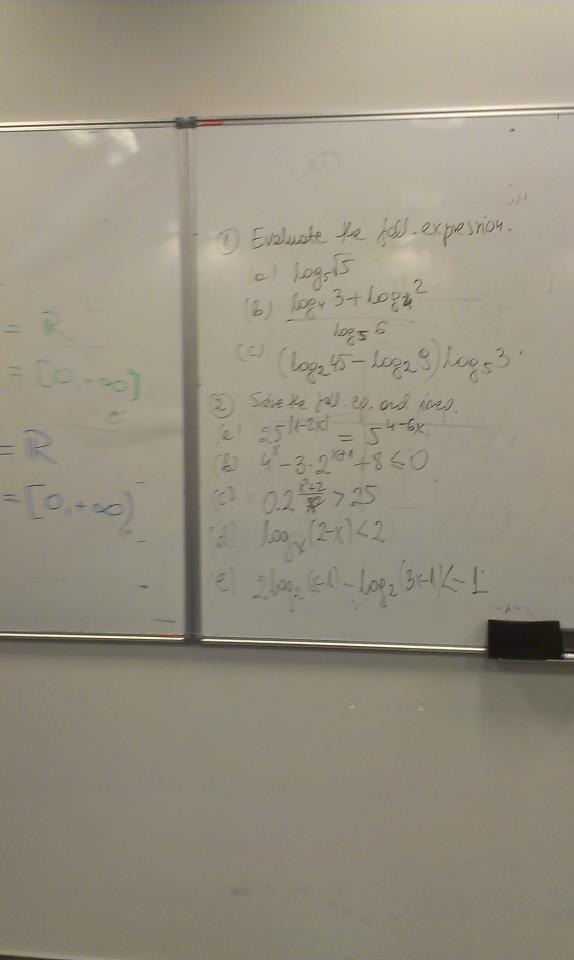 = ℝ
= [0,+∞)
= ℝ
= [0,+∞)
① Evaluate the foll. expression.
(a) log₅√5
(b) (log₄ 3 + log₄ 2) / log₅ 6
(c) (log₂ 45 − log₂ 9) log₅ 3
② Solve the foll. eq. and ineq.
(a) 25^|1−2x| = 5^(4−6x)
(b) 4^x − 3·2^(x+1) + 8 ≤ 0
(c) 0.2 > 25
(d) logₓ(2−x) < 2
(e) 2log₂(x−1) − log₂(3x−1) < −1